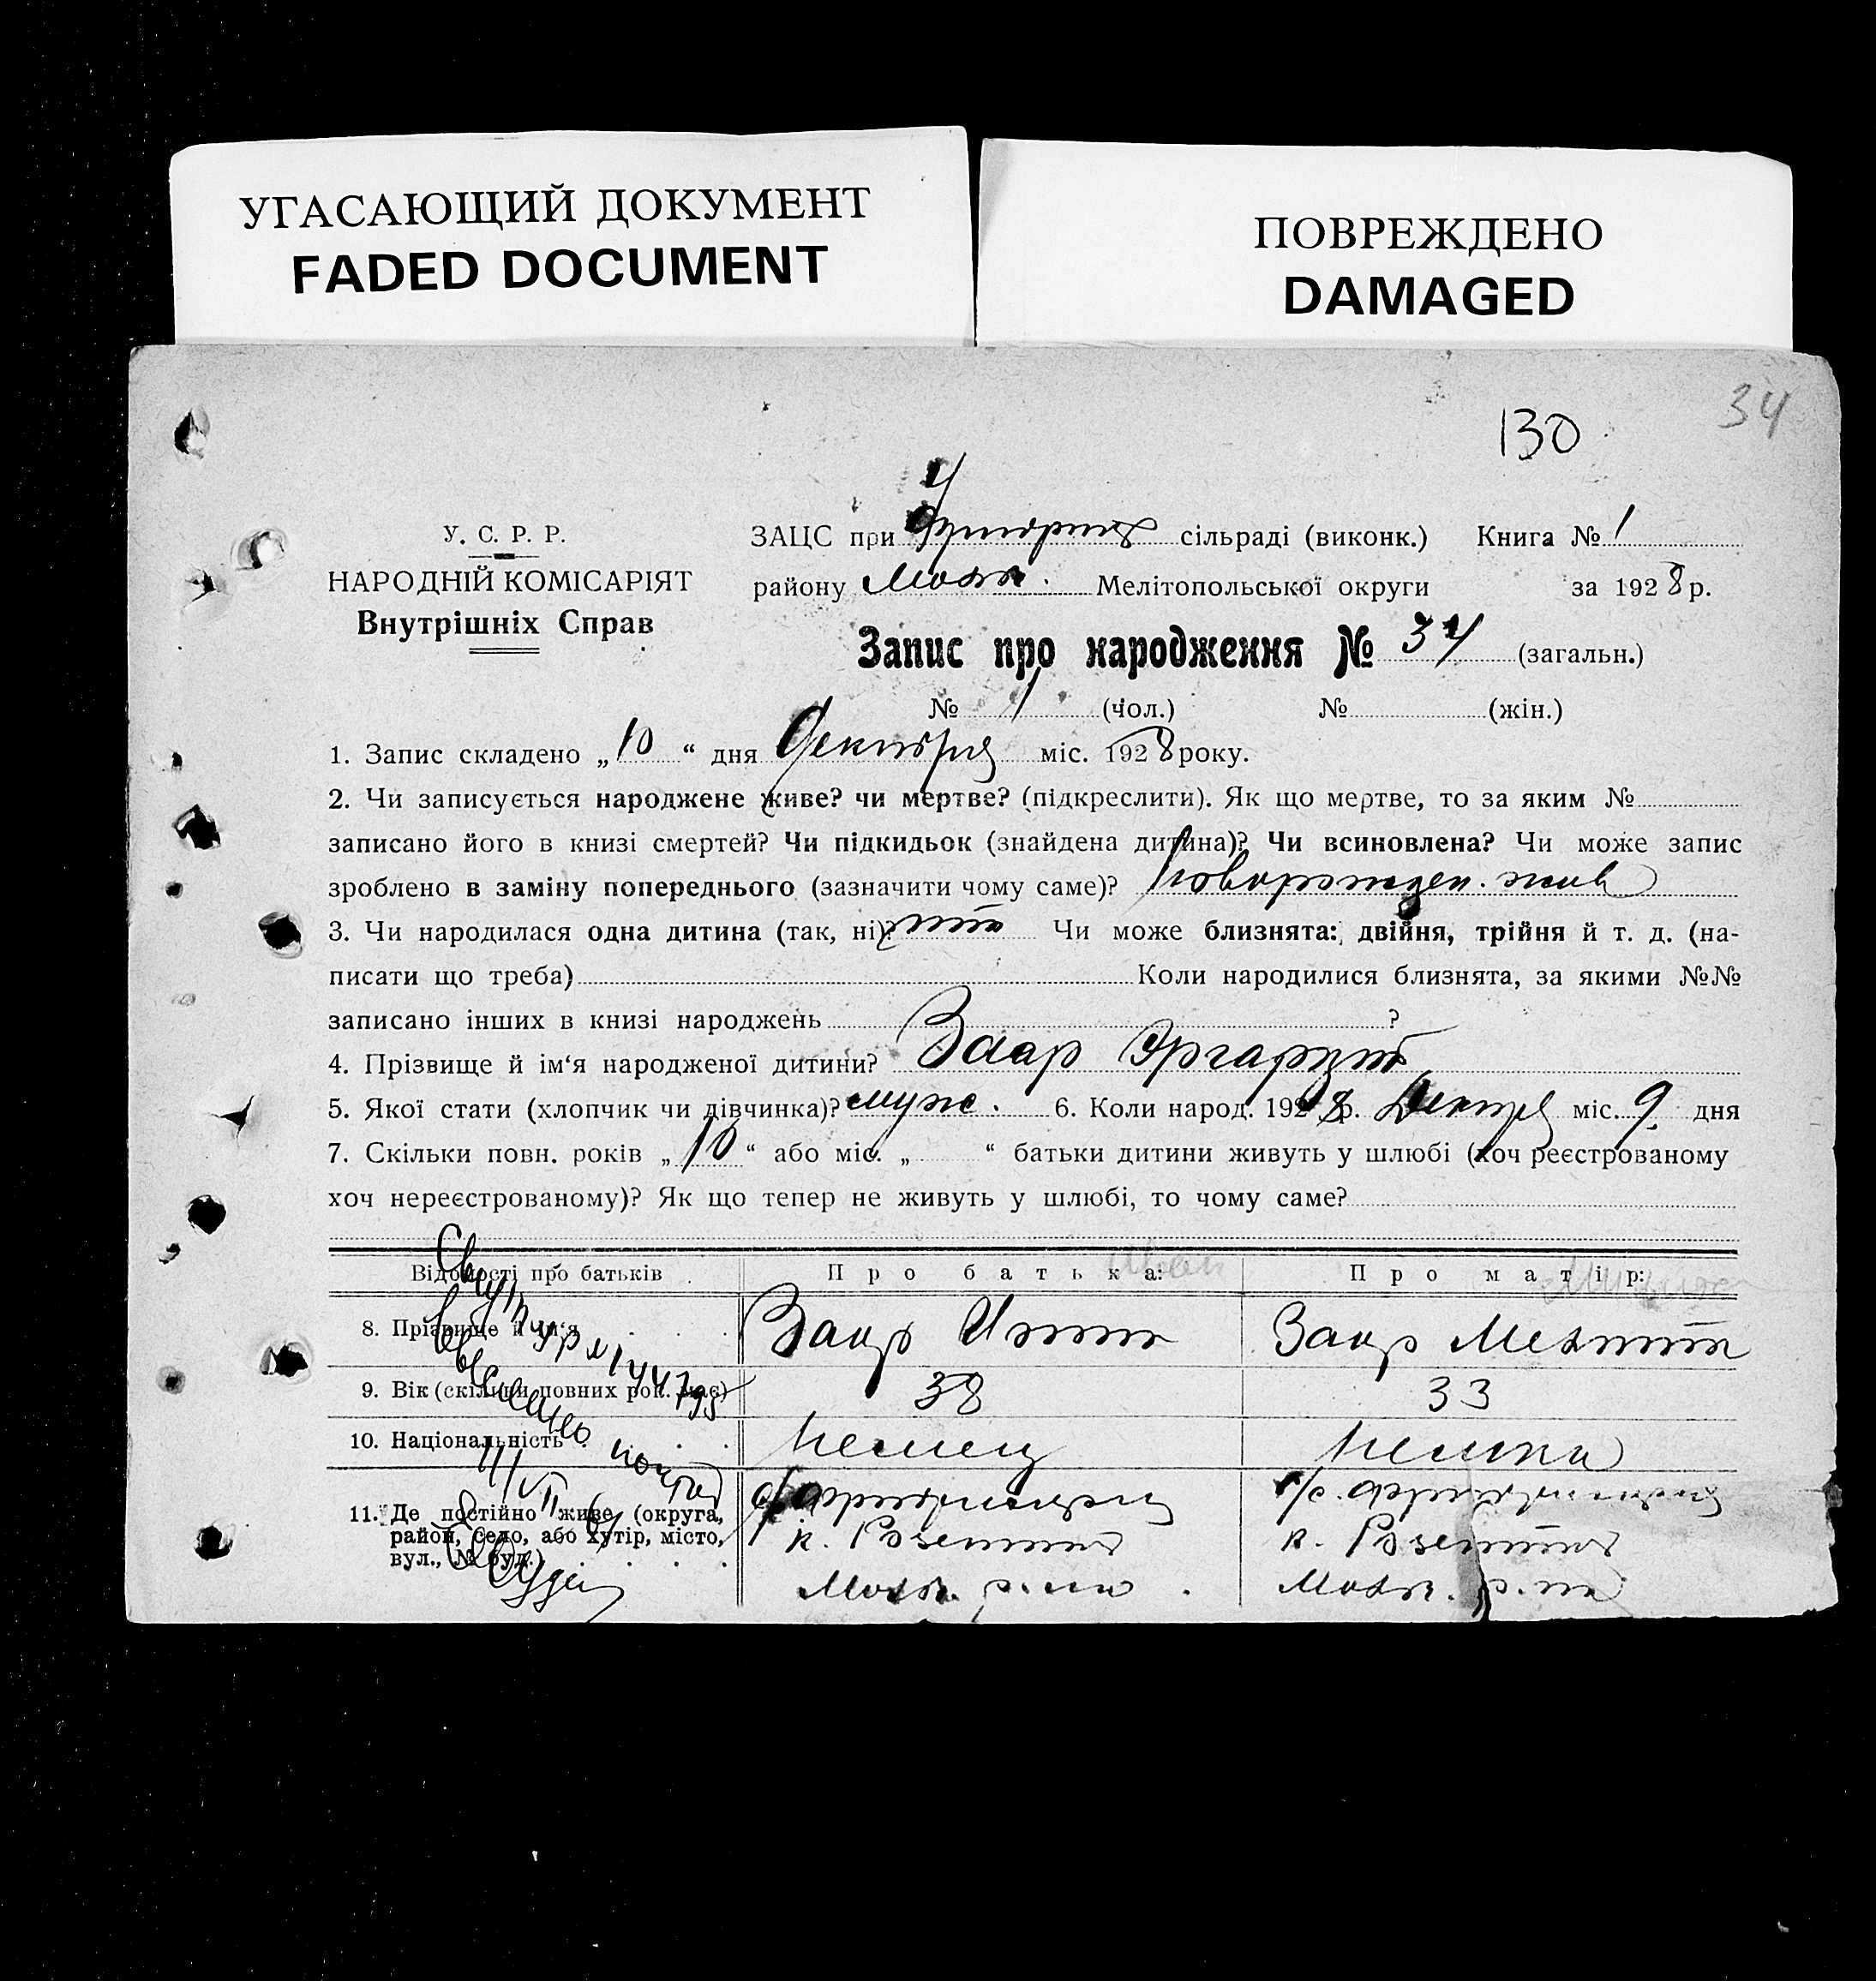 УГАСАЮЩИЙ ДОКУМЕНТ
FADED DOCUMENT
ПОВРЕЖДЕНО
DAMAGED
34
130
У. С. Р. Р.
НАРОДНІЙ КОМІСАРІЯТ
Внутрішніх Справ
ЗАЦС при сільраді (виконк.) Книга № 1
району Мол. Мелітопольської округи за 1928 р.
Запис про народження № 34 (загальн.)
№ 1 (чол.) № (жін.)
1. Запис складено „10“ дня Декабря міс. 1928 року.
2. Чи записується народжене живе? чи мертве? (підкреслити). Як що мертве, то за яким №
записано його в книзі смертей? Чи підкидьок (знайдена дитина)? Чи всиновлена? Чи може запис
зроблено в заміну попереднього (зазначити чому саме)? Новорожден. жив
3. Чи народилася одна дитина (так, ні)? Чи може близнята: двійня, трійня й т. д. (на-
писати що треба) Коли народилися близнята, за якими №№
записано інших в книзі народжень ?
4. Прізвище й ім‘я народженої дитини? Заар Эргардт
5. Якої стати (хлопчик чи дівчинка)? муж. 6. Коли народ. 1928 р. Декабря міс. 9 дня
7. Скільки повн. років „10“ або міс. „ “ батьки дитини живуть у шлюбі (хоч реєстрованому
хоч нереєстрованому)? Як що тепер не живуть у шлюбі, то чому саме?
Відомості про батьків Про батька: Про матір:
8. Прізвище й ім‘я Заар Заар
9. Вік (скільки повних рок. має) 38 33
10. Національність Немец Немка
11. Де постійно живе (округа,
район, село, або хутір, місто,
вул., № буд.)